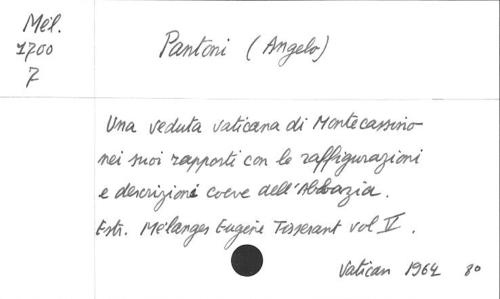 Mél.
1700
7
Pantoni (Angelo)
Una veduta vaticana di Montecassino
nei suoi rapporti con le raffigurazioni
e descrizioni coeve dell'Abbazia.
Estr. Mélanges Eugène Tisserant vol V.
Vatican 1964 80